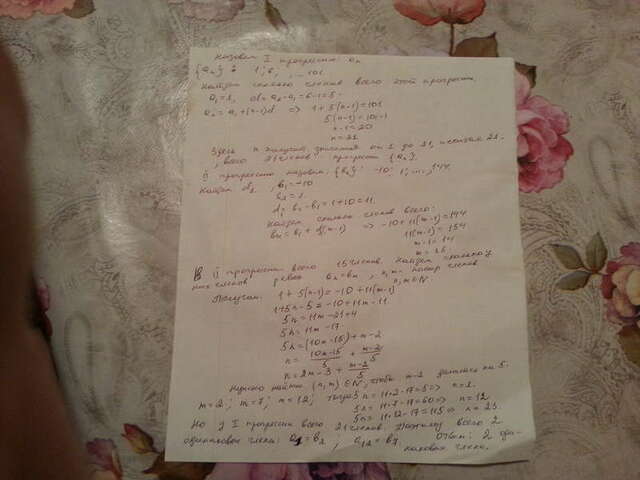 Назовем I прогрессию: aₙ
{aₙ}: 1; 6, ..., 101.
Найдем сколько членов всего этой прогрессии.
a₁=1, d=a₂-a₁=6-1=5.
aₙ=a₁+(n-1)d => 1+5(n-1)=101
5(n-1)=101-1
n-1=20
n=21
Здесь n получил значения от 1 до 21, 21.
всего 21 членов прогрессии {aₙ}.
II прогрессию назовем {bₙ}: -10; 1; ..., 144.
Найдем d₁, b₁=-10
b₂=1
d₁=b₂-b₁=1+10=11.
Найдем сколько членов всего:
bₘ=b₁+d(m-1) => -10+11(m-1)=144
11(m-1)=154
m-1=14
m=15.
В II прогрессии всего 15 членов. Найдем сколько у
них членов aₙ=bₘ, n, m- номер членов
n, m∈N.
Получим: 1+5(n-1)=-10+11(m-1)
1+5n-5=-10+11m-11
5n=11m-21+4
5n=11m-17
5n=(10m-15)+m-2
n=(10m-15)/5+(m-2)/5
n=2m-3+(m-2)/5
Нужно найти (n,m)∈N, чтобы m-2 делилось на 5.
m=2; m=7; m=12; тогда 5n=11·2-17=5 => n=1.
5n=11·7-17=60 => n=12
5n=11·12-17=115 => n=23.
Но у I прогрессии всего 21 членов. Поэтому всего 2
одинаковых члена: a₁=b₂; a₁₂=b₇ Ответ: 2 оди-
наковых члена.